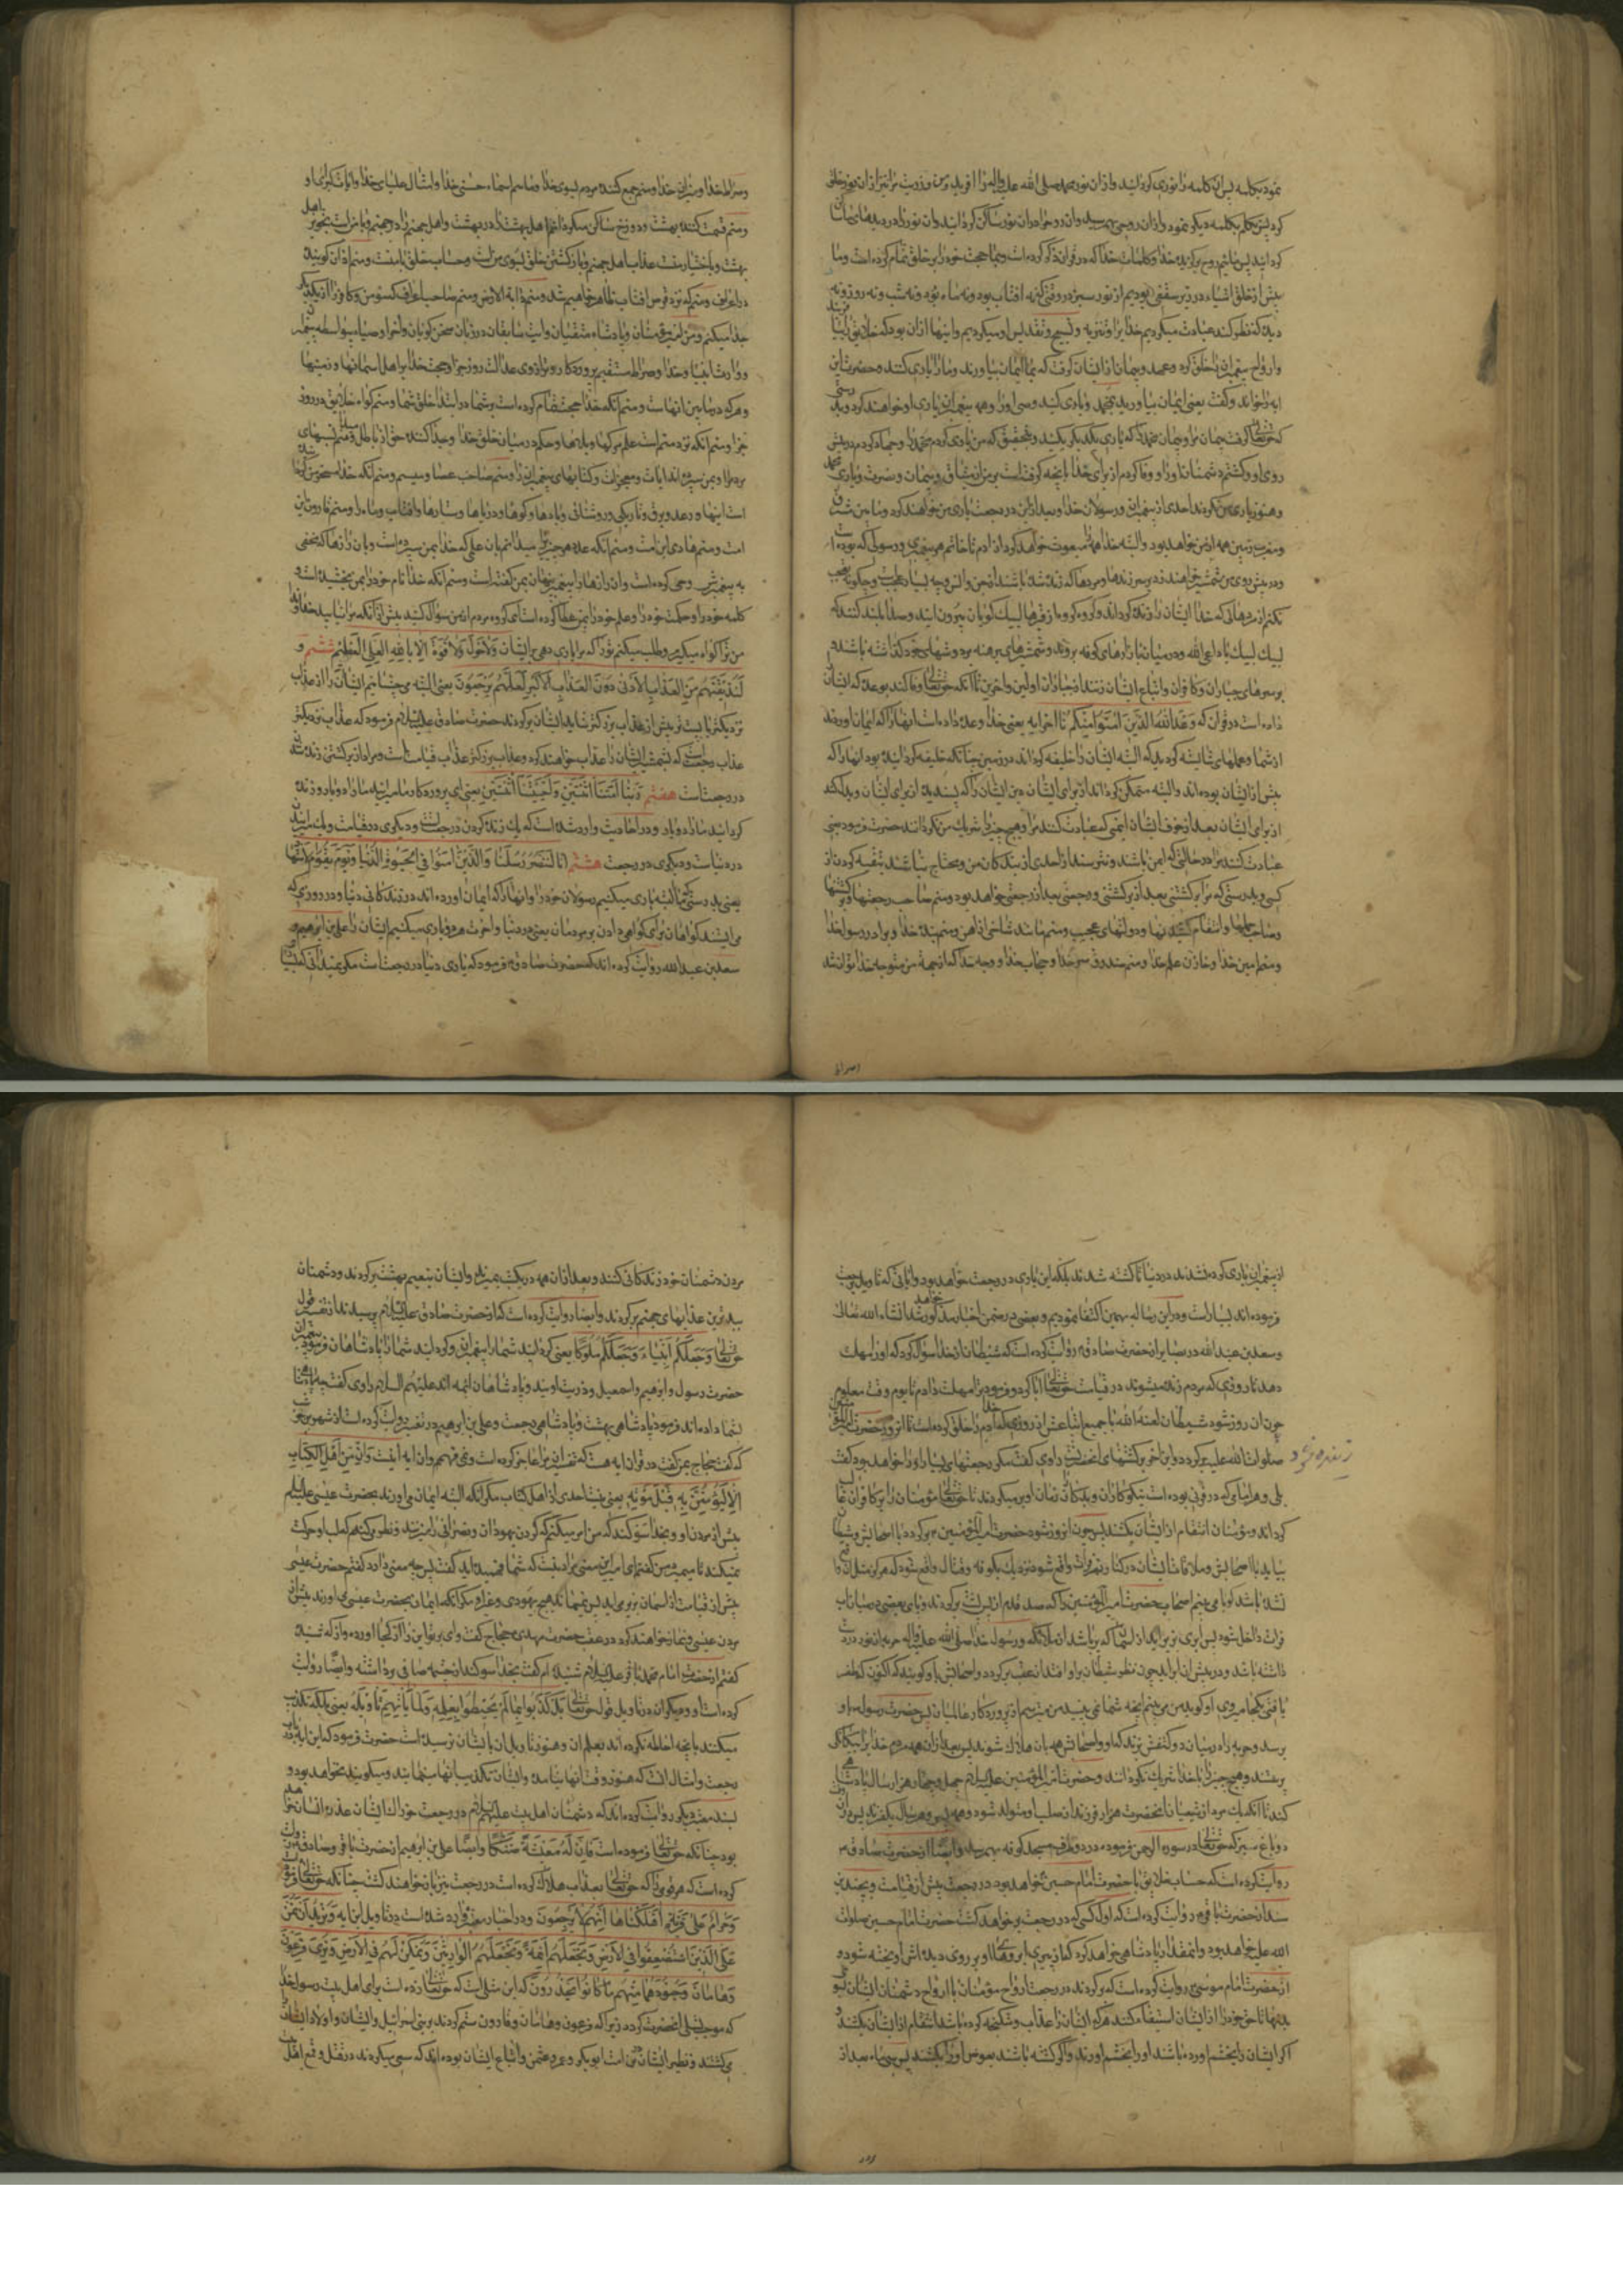 نمود بکلمه پس آن کلمه را نوری کردانید و ازان نور محمد صلی الله علیه واله را افرید و من و ذریت مرا نیز ازان نور خلق
کرد پس تکلم بکلمه دیکر نمود و ازان روحی بهم رسید و ان روح را دران نور ساکن کردانید و ان نور را در بدنهای ما ساکن
کردانید پس مائیم روح برکزیده خدا و کلمات خدا که در قران ذکر کرده است و بما حجت خود را بر خلق تمام کرده است و ما
پیش از خلق اشیاء در زیر سقفی بودیم از نور سبز در وقتی که نه افتاب بود و نه ماه بود و نه شب و نه روز و نه
دیده که نظر کند عبادت میکردیم خدا را و تنزیه و تسبیح و تقدیس او میکردیم و اینها ازان بود که خلایق را بیافریند
و ارواح پیغمبران را خلق کرد و عهد و پیمان از ایشان کرفت که بما ایمان بیاورند و ما را یاری کنند و حضرت این
ایه را خواند و کفت یعنی ایمان بیاورید بمحمد و یاری کنید وصی او را و همه پیغمبران یاری او خواهند کرد و بدرستی
که حق تعالی کرفت پیمان مرا و پیمان محمد را که یاری یکدیکر بکنید و بتحقیق که من یاری کردم محمد را و جهاد کردم در پیش
روی او و کشتم دشمنان او را و وفا کردم از برای خدا بانچه کرفته است بر من از میثاق و پیمان و نصرت و یاری محمد
و هنوز یاری من نکرده‌اند احدی از پیغمبران و رسولان خدا و بعد ازین در رجعت یاری من خواهند کرد و ما بین مشرق
و مغرب زمین همه ازمن خواهد بود و البته خدا همه را مبعوث خواهد کرد از ادم تا خاتم هر پیغمبری و رسولی که بوده است
و در پیش روی من شمشیر خواهند زد بر سر زندها و مردها که زنده شده باشند از جن و انس و چه بسیار عجبست و چکونه تعجب
نکنم از مردهائی که خدا ایشان را زنده کرداند و کروه کروه از قبرها لبیک کویان بیرون ایند و صدا بلند کنند که
لبیک لبیک یا داعی الله و در میان بازارهای کوفه بروند و شمشیرهای برهنه بر دوشهای خود کذاشته باشند و
بر سرهای جباران و کافران و اتباع ایشان زنند از جباران اولین و اخرین تا انکه حق تعالی وفا کند بوعده که ایشان را
داده است در قران که وعد الله الذین امنوا منکم تا اخر ایه یعنی خدا وعده داده است انها را که ایمان اوردند
از شما و عملهای شایسته کردند که البته ایشان را خلیفه کرداند در زمین چنانکه خلیفه کردانید بود انها را که
پیش از ایشان بوده‌اند والبته متمکن کرداند از برای ایشان دین ایشان را که پسندیده از برای ایشان و بدل کند
از برای ایشان بعد از خوف ایشان ایمنی که عبادت کنند مرا و هیچ چیز را شریک من نکردانند حضرت فرمود یعنی
عبادت کنند مرا در حالتی که ایمن باشند و نترسند از احدی از بندکان من و محتاج نباشند بتقیه کردن از
کسی و بدرستی که مرا برکشتنی بعد از برکشتنی و رجعتی بعد از رجعتی خواهد بود و منم صاحب رجعتها و برکشتنها
و صاحب حملها و انتقام کشیدنها و دولتهای عجیب و منم مانند شاخی از اهن و منم بنده خدا و برادر رسول خدا
و منم امین خدا و خازن علم خدا و منم صندوق سر خدا و حجاب خدا و وجه خدا که از جهة من متوجه خدا توان شد
و صراط خدا و میزان خدا و منم جمع کننده مردم بسوی خدا و مائیم اسماء حسنی خدا و امثال علیای خدا و ایات کبرای او
و منم قسمت کننده بهشت و دوزخ ساکن میکردانم اهل بهشت را در بهشت و اهل جهنم را در جهنم و با من است تزویج اهل
بهشت و باختیار منست عذاب اهل جهنم و بازکشتن خلق بسوی من است و حساب خلق با منست و منم اذان کوینده
در اعراف و منم که نزد قرص افتاب ظاهر خواهم شد و منم دابة الارض و منم صاحب اعراف که مؤمن و کافر را از یکدیکر
جدا میکنم و منم امیر مؤمنان و پادشاه متقیان وایت سابقان و زبان سخن کویان و اخر اوصیاء پیغمبران
و وارث انبیا و خلیفه خدا و صراط مستقیم پروردکار و ترازوی عدالت روز جزا و حجت خدا بر اهل اسمانها و زمینها
و هر که در مابین انهاست و منم انکه خدا حجت تمام کرده است بر شما در ابتداء خلق شما و منم کواه خلایق در روز
جزا و منم انکه نزد منست علم مرکها و بلاها و حکم درمیان خلق خدا و جدا کننده حق از باطل و میدانم نسبهای
مردم را و بمن سپرده‌اند ایات و معجزات و کتابهای پیغمبران را و منم صاحب عصا و میسم و منم انکه خدا مسخر من کرده
است ابرها و رعد و برق و تاریکی و روشنائی و بادها و کوهها و دریاها و ستارها و افتاب و ماه را و منم فاروق این
امت و منم هادی این امت و منم انکه عدد هر چیز را میدانم بان علمی که خدا بمن سپرده است و بان رازها که مخفی
به پیغمبرش وحی کرده است و ان رازها را پیغمبر پنهان بمن کفته است و منم انکه خدا نام خود را بمن بخشیده است و
کلمه خود را و حکمت خود را و علم خود را بمن عطا کرده است ای کروه مردم از من سؤال کنید پیش از انکه مرا نیابید خداوندا
من ترا کواه میکیرم و طلب میکنم تو را که مرا یاری دهی بر ایشان ولا حول ولا قوة الا بالله العلی العظیم ششم و
لنذیقنهم من العذاب الادنی دون العذاب الاکبر لعلهم یرجعون یعنی البته می‌چشانیم ایشان را از عذاب
نزدیکتر یا پست‌تر پیش از عذاب بزرکتر شاید ایشان برکردند حضرت صادق علیه‌السلام فرمود که عذاب نزدیکتر
عذاب رجعتست که بشمشیر ایشان را عذاب خواهند کرد و عذاب بزرکتر عذاب قیامتست و مراد از برکشتن زنده شدن
در رجعتست هفتم ربنا امتنا اثنتین واحییتنا اثنتین یعنی ای پروردکار ما میرانیدی ما را دوبار و زنده
کردانیدی ما را دوبار و در احادیث وارد شده است که یک زنده کردن در رجعتست و دیکری در قیامت و یک میرانیدن
در دنیاست و دیکری در رجعت هشتم انا لننصر رسلنا والذین امنوا فی الحیوة الدنیا ویوم یقوم الاشهاد
یعنی بدرستی که ما البته یاری میکنیم رسولان خود را و انها را که ایمان اورده‌اند در زندکانی دنیا و در روزی که
می‌ایستند کواهان برای کواهی دادن بر مردمان یعنی در دنیا و اخرت هر دو یاری میکنیم ایشان را علی بن ابرهیم و
سعد بن عبدالله روایت کرده‌اند که حضرت صادق ع فرمود که یاری دنیا در رجعتست مکر نمیدانی که بسیاری
از پیغمبران یاری کرده نشدند در دنیا تا کشته شدند بلکه این یاری در رجعت خواهد بود و ایاتی که تاویل برجعت
فرموده‌اند بسیار است و در این رساله بهمین اکتفا نمودیم و بعضی در ضمن اخبار مذکور خواهد شد انشاء الله تعالی
و سعد بن عبدالله در بصایر از حضرت صادق ع روایت کرده است که شیطان از خدا سؤال کرد که او را مهلت
دهد تا روزی که مردم زنده میشوند در قیامت حق تعالی ابا کرد و فرمود ترا مهلت دادم تا یوم وقت معلوم
چون ان روز شود شیطان لعنه الله با جمیع اتباعش از روزی که خدا ادم را خلق کرده است تا انروز و حضرت امیرالمؤمنین
صلوات الله علیه برکردد و این اخر برکشتهای انحضرتست راوی کفت مکر رجعتهای بسیار او را خواهد بود کفت
زنده شود
بلی و هر امامی که در قرنی بوده است نیکوکاران و بدکاران زمان او بر میکردند تا حق تعالی مؤمنان را بر کافران غالب
کرداند و مؤمنان انتقام از ایشان بکشند پس چون انروز شود حضرت امیرالمؤمنین ع برکردد با اصحابش و شیطان
بیاید با اصحابش و ملاقات ایشان در کنار نهر فرات واقع شود نزدیک بکوفه و قتالی واقع شود که هرکز مثل ان واقع
نشده باشد کویا می‌بینم اصحاب حضرت امیرالمؤمنین را که صد قدم از پس پشت برکردند و پای بعضی در میان اب
فرات داخل شود پس ابری بزیر اید از اسمان که پر باشد از ملائکه و رسول خدا صلی الله علیه واله حربه از نور در دست
داشته باشد و در پیش ان ابر اید چون نظر شیطان بر او افتد از عقب برکردد و اصحابش باو کویند که اکنون که ظفر
یافتی بکجا میروی او کوید من می‌بینم انچه شما نمی‌بینید من میترسم از پروردکار عالمیان پس حضرت رسول ص باو
برسد و حربه را در میان دو کتفش بزند که او و اصحابش همه بان هلاک شوند پس بعد ازان همه مردم خدا را بیکانکی
بپرستند و هیچ چیز را با خدا شریک نکردانند و حضرت امیرالمؤمنین علیه‌السلام چهل و چهار هزار سال پادشاهی
کند تا انکه یک مرد از شیعیان انحضرت هزار فرزند از صلب او متولد شود و همه پسر و هر سال یک فرزند پس دران وقت
دو باغ سبز که حق تعالی در سوره الرحمن فرموده در دو طرف مسجد کوفه بهم رسد و ایضا از حضرت صادق ع
روایت کرده است که حساب خلایق با حضرت امام حسین ع خواهد بود در رجعت پیش از قیامت و بچندین
سند از حضرت باقر ع روایت کرده است که اول کسی که در رجعت بر خواهد کشت حضرت امام حسین صلوات
الله علیه خواهد بود و انمقدار پادشاهی خواهد کرد که از پیری ابروهای او بر روی دیده اش اویخته شود و
از حضرت امام موسی ع روایت کرده است که برکردند در رجعت ارواح مؤمنان با ارواح دشمنان ایشان بسوی
بدنها تا حق خود را از ایشان استیفاء کنند هر که ایشان را عذاب و شکنجه کرده باشد انتقام از ایشان بکشند و
اکر ایشان را بخشم اورده باشند او را بخشم اورند و اکر کشته باشند بعوض او را بکشند پس سی ماه بعد از
مردن دشمنان خود زندکانی کنند و بعد ازان همه در یکشب بمیرند و ایشان بنعیم بهشت برکردند و دشمنان
ببدترین عذابهای جهنم برکردند و ایضا روایت کرده است که از حضرت صادق علیه‌السلام پرسیدند از تفسیر قول
حق تعالی وجعلکم انبیاء وجعلکم ملوکا یعنی کردانید شما را پیغمبران و کردانید شما را پادشاهان فرمود پیغمبران
حضرت رسول و ابرهیم و اسمعیل و ذریت اویند و پادشاهان ائمه اند علیهم السلام راوی کفت چه پادشاهی
بشما داده‌اند فرمود پادشاهی بهشت و پادشاهی رجعت و علی بن ابرهیم در تفسیر روایت کرده است از شهر بن حوشب
که کفت حجاج بمن کفت در قران ایه هست که تفسیر ان مرا عاجز کرده است و نمی‌فهمم و ان ایه اینست وان من اهل الکتاب
الا لیؤمنن به قبل موته یعنی نیست احدی از اهل کتاب مکر انکه البته ایمان می‌اورند بحضرت عیسی علیه‌السلم
پیش از مردن او و بخدا سوکند که من امر میکنم که کردن یهودان و نصرانی را میزنند و نظر میکنم که لب او حرکت
نمیکند تا میمیرد من کفتم ای امیر این معنی مراد نیست که شما فهمیده‌اید کفت پس چه معنی دارد کفتم حضرت عیسی
پیش از قیامت از اسمان بزیر می‌اید پس نمی‌ماند هیچ یهودی و غیر او مکر انکه ایمان بحضرت عیسی می‌اورند پیش از
مردن عیسی و نماز خواهند کرد در عقب حضرت مهدی حجاج کفت وای بر تو این را از کجا اورده و از که شنیده
کفتم از حضرت امام محمد باقر علیه‌السلام شنیده ام کفت بخدا سوکند از چشمه صافی برداشته و ایضا روایت
کرده است او و دیکران در تاویل قول حق تعالی بل کذبوا بما لم یحیطوا بعلمه ولما یاتهم تاویله یعنی بلکه تکذیب
میکنند بانچه احاطه نکرده‌اند بعلم ان و هنوز تاویل ان بایشان نرسیده است حضرت فرمود که این ایه در باب
رجعت و امثال انست که هنوز وقت انها نیامده و ایشان تکذیب انها مینمایند و میکویند نخواهد بود و
بسند معتبر دیکر روایت کرده‌اند که دشمنان اهل بیت علیهم‌السلام در رجعت خوراک ایشان عذره انسان خواهد
بود چنانکه حق تعالی فرموده است فان له معیشة ضنکا و ایضا علی بن ابرهیم از حضرت باقر و صادق ع روایت
کرده است که هر قومی را که حق تعالی بعذاب هلاک کرده است در رجعت نیز باز نخواهند کشت چنانکه حق تعالی فرموده
وحرام علی قریة اهلکناها انهم لا یرجعون و در اخبار معتبره وارد شده است در تاویل این ایه ونرید ان نمن
علی الذین استضعفوا فی الارض ونجعلهم ائمة ونجعلهم الوارثین ونمکن لهم فی الارض ونری فرعون
وهامان وجنودهما منهم ما کانوا یحذرون که این مثلی است که حق تعالی زده است برای اهل بیت رسول خدا
که موجب تسلی انحضرت کردد زیرا که فرعون و هامان و قارون ستم کردند بر بنی اسرائیل و ایشان و اولاد ایشان را
می‌کشتند و نظیر ایشان درین امت ابوبکر و عمر و عثمن و اتباع ایشان بوده‌اند که سعی میکردند در قتل و قمع اهل